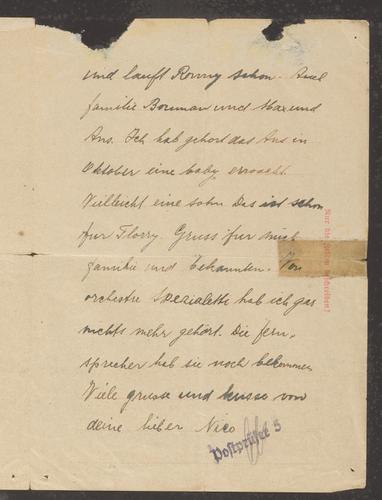 und lauft Ronny schon. Auel
familie Bouman und Max und
Ans. Ich hab gehort das Ans in
Oktober eine baby erwacht.
Vielleicht eine sohn. Das ist schon
fur Florry. Gruss fur mich
familie und bekannten. Von
orchestre hab ich gar
nichts mehr gehört. Die fern,
sprecher hab sie noch bekommen
Viele grusse und kusse von
deine lieber Nico
Postprüfer 5